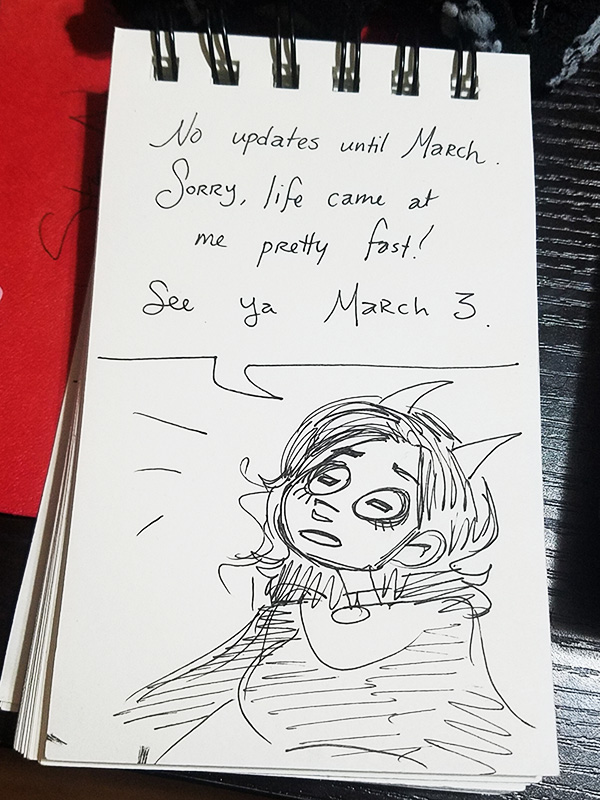 No updates until March.
Sorry, life came at
me pretty fast!
See ya March 3.